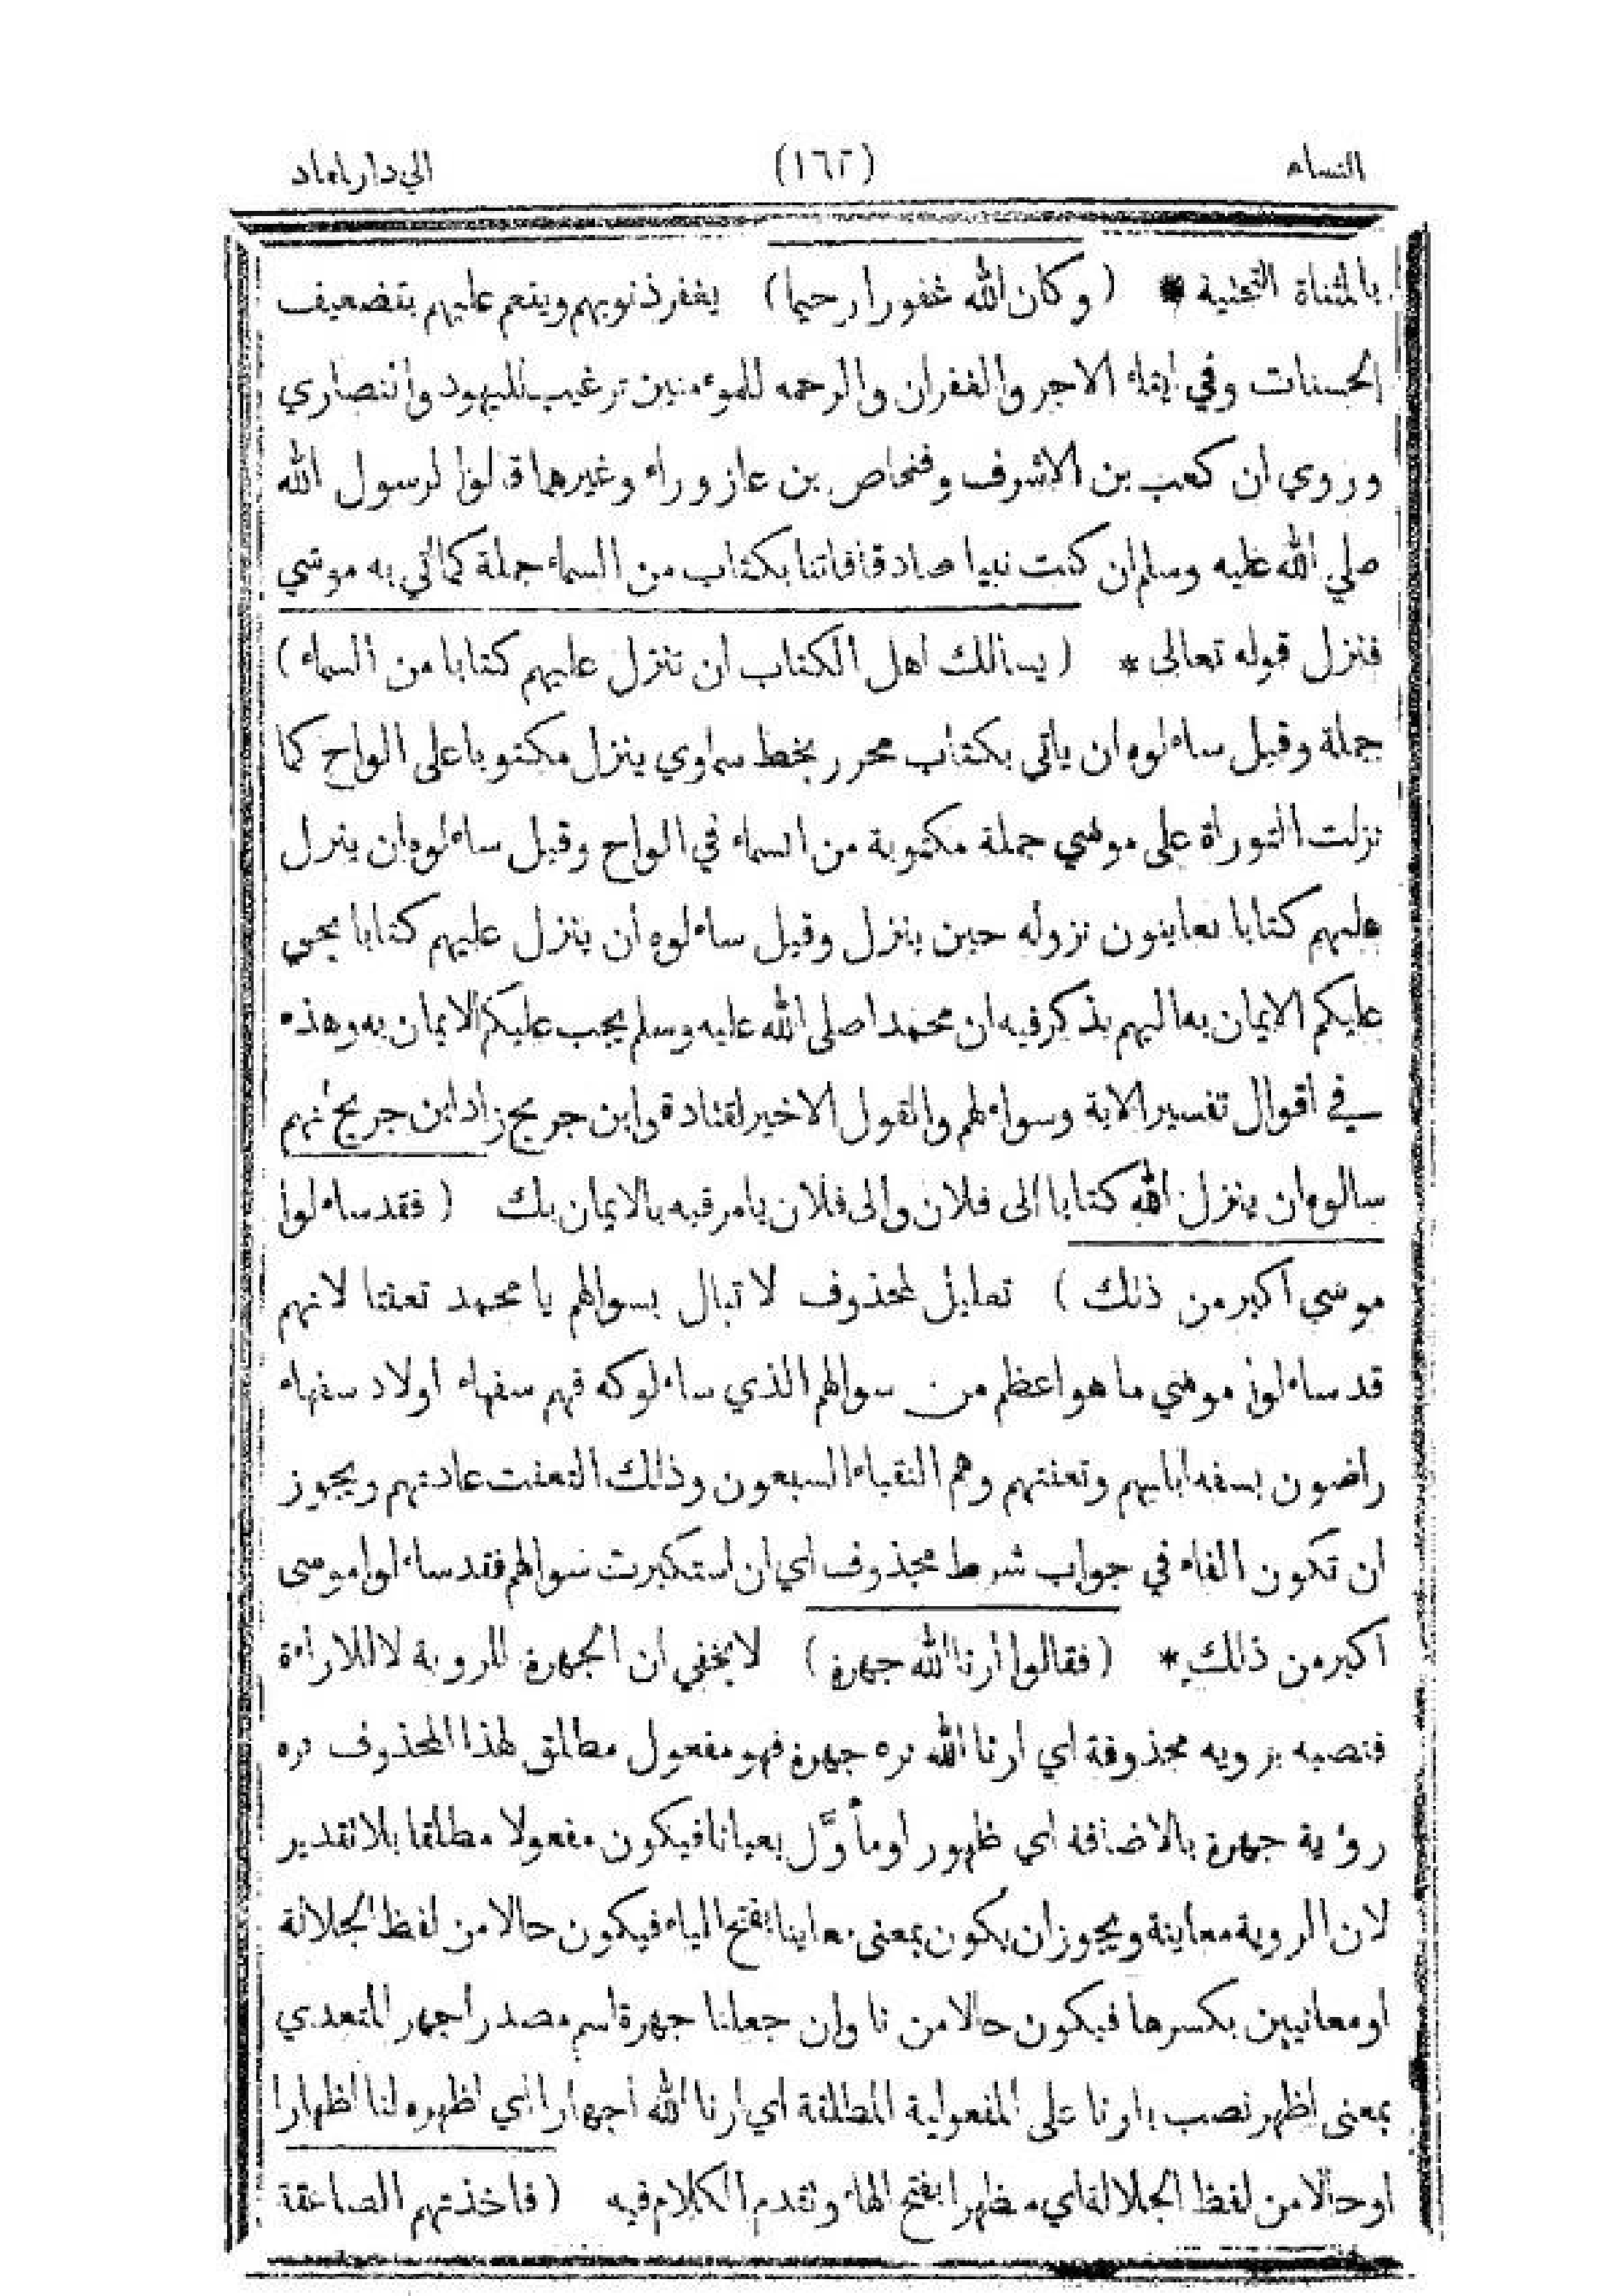 النساء (١٦٢) الي دار اماد
بالمثناة التحتية * (وكان الله غفورا رحيما) يغفر ذنوبهم وينعم عليهم بتضعيف
الحسنات وفي ايتاء الاجر والغفران والرحمه للموءمنين ترغيب لليهود والنصاري
وروي ان كعب بن الاشرف وفنحاص بن عازوراء وغيرهما قالوا لرسول الله
صلي الله عليه وسلم ان كنت نبيا صادقا فاتنا بكتاب من السماء جملة كما اتي به موسي
فنزل قوله تعالى * (يسالك اهل الكتاب ان تنزل عليهم كتابا من السماء)
جملة وقيل ساءلوه ان ياتي بكتاب محرر بخط سماوي ينزل مكتوبا على الواح كما
نزلت التوراة على موسي جملة مكتوبة من السماء في الواح وقيل ساءلوه ان ينزل
عليهم كتابا يعاينون نزوله حين ينزل وقيل ساءلوه ان ينزل عليهم كتابا
عليكم الايمان به اليهم يذكر فيه ان محمدا صلى الله عليه وسلم يجب عليكم الايمان به وهذه
في اقوال تفسير الاية وسواءلهم والقول الاخير لقتادة وابن جريج زاد ابن جريج انهم
سالوه ان ينزل الله كتابا الى فلان والى فلان يامر فيه بالايمان بك (فقد ساءلوا
موسي اكبر من ذلك) تعليل لمحذوف لا تبال بسوالهم يا محمد تعنتا لانهم
قد ساءلوا موسي ما هو اعظم من سوالهم الذي ساءلوكه فهم سفهاء اولاد سفهاء
راضون بسفه ابايهم وتعنتهم وهم النقباء السبعون وذلك التعنت عادتهم ويجوز
ان تكون الفاء في جواب شرط محذوف اي ان استكبرت سوالهم فقد ساءلوا موسى
اكبر من ذلك * (فقالوا ارنا الله جهرة) لا يخفي ان الجهرة للروية لا للاراءة
فنصبه بروية محذوفة اي ارنا الله نره جهرة فهو مفعول مطلق لهذا المحذوف نره
رؤية جهرة بالاضافة اي ظهور او مأوَّل بعيانا فيكون مفعولا مطلقا بلا تقدير
لان الروية معاينة ويجوز ان يكون بمعنى معاينا بفتح الياء فيكون حالا من لفظ الجلالة
او معانيين بكسرها فيكون حالا من نا وان جعلنا جهرة اسم مصدر اجهر المتعدي
بمعنى اظهر نصب بارنا على المفعولية المطلقة اي ارنا الله اجهارا اي اظهره لنا اظهارا
او حالا من لفظ الجلالة اي مظهرا بفتح الهاء وتقدم الكلام فيه (فاخذتهم الصاعقة